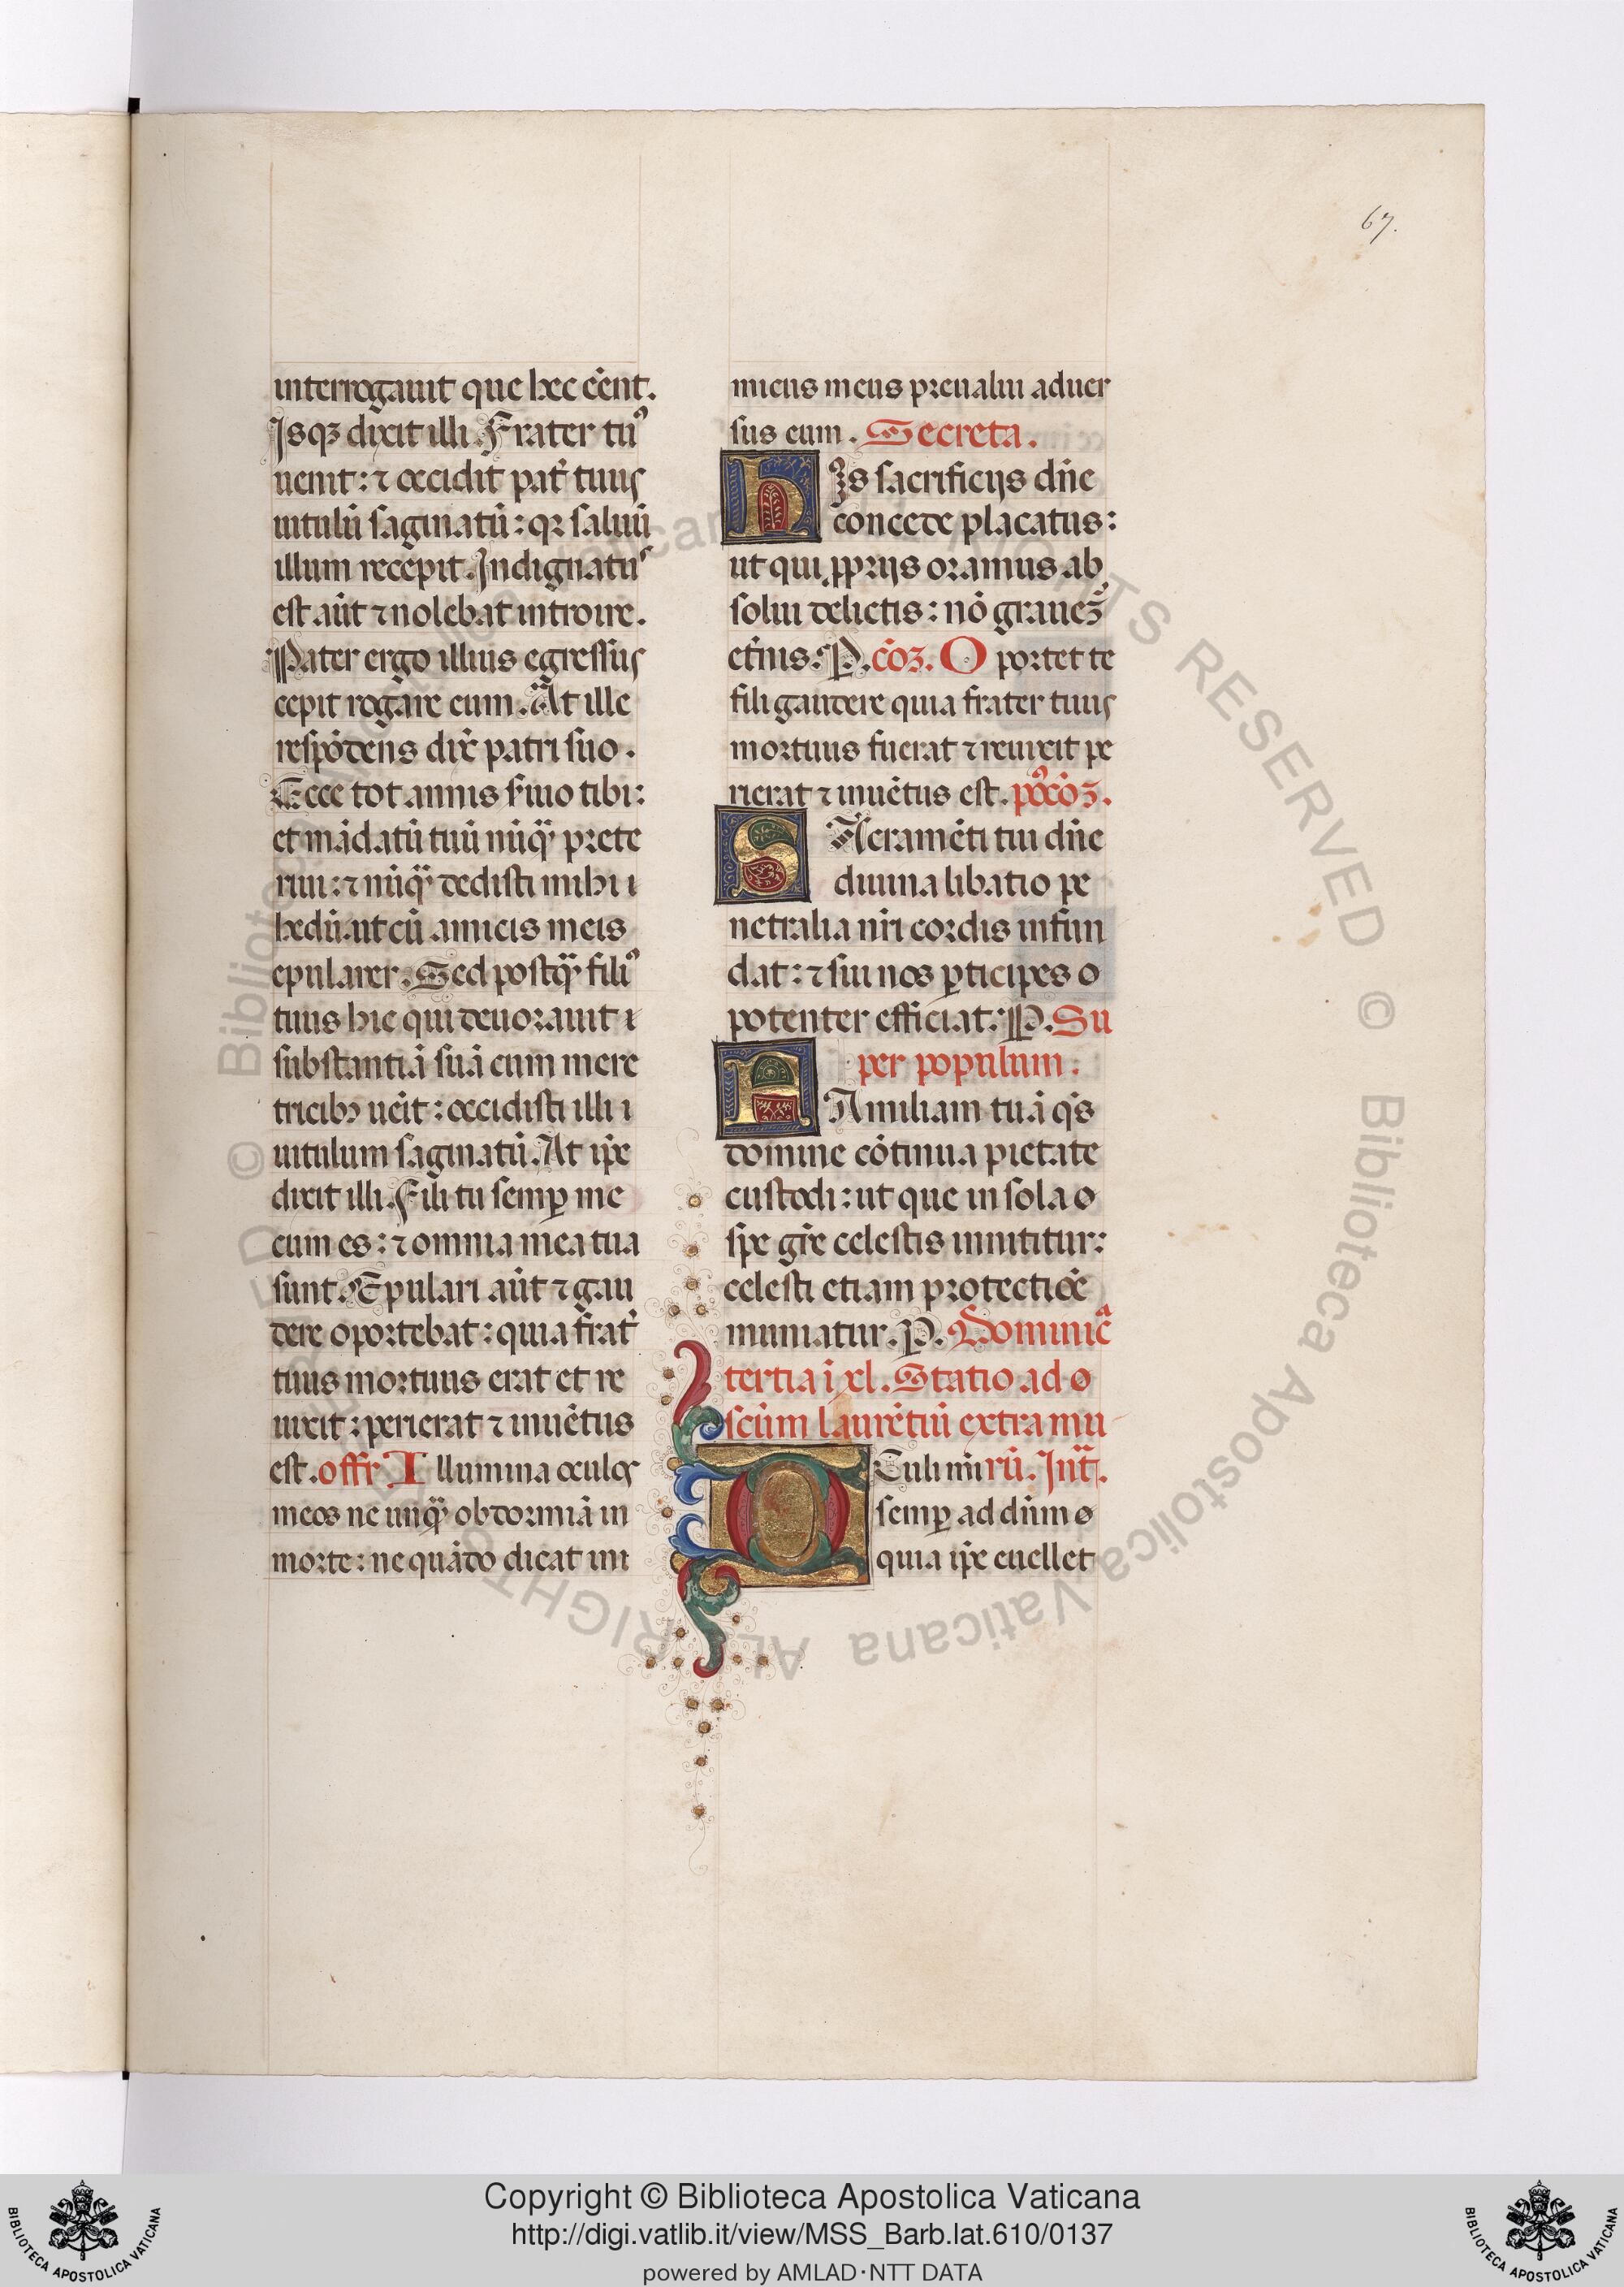 67.
interrogauit que hec eẽnt.
Isqȝ dixit illi. Frater tuꝰ
uenit: ⁊ occidit pat̃ tuus
uitulũ saginatũ: qꝛ saluũ
illum recepit. Indignatus
est aũt ⁊ nolebat introire.
Pater ergo illius egressus
cepit rogare eum. At ille
respõdens dix̃ patri suo.
Ecce tot annis s̃uio tibi:
et mãdatũ tuũ nũqͣ prete
riui: ⁊ nũqͣ dedisti mihi i
hedũ. ut cũ amicis meis
epularer. Sed postqͣ filiꝰ
tuus hic qui deuorauit i
substantiã suã cum mere
tricibꝫ uẽit: occidisti illi i
uitulum saginatũ. At ip̃e
dixit illi. Fili tu semꝑ me
cum es: ⁊ omnia mea tua
sunt. Epulari aũt ⁊ gau
dere oportebat: quia frat̃
tuus mortuus erat et re
uixit: perierat ⁊ inuẽtus
est. offr̃ Illumina oculos
meos ne unqͣ obdormiã in
morte: ne quãdo dicat ini
micus meus preualui aduer
sus eum. Secreta.
His sacrificijs dñe
concede placatus:
ut qui ꝓprijs oramus ab
solui delictis: nõ grauem̃
ext̃nis. P. cõȝ. Oportet te
fili gaudere quia frater tuus
mortuus fuerat ⁊ reuixit pe
rierat ⁊ inuẽtus est. pꝰcõȝ.
SAcramẽti tui dñe
diuina libatio pe
netralia nr̃i cordis infun
dat: ⁊ sui nos ꝑticipes o
potenter efficiat. P. Su
per populum.
FAmiliam tuã qs̃
domine cõtinua pietate
custodi: ut que in sola o
spe gr̃e celestis innititur:
celesti etiam protectiõe
muniatur. P. Dominicͣ
tertia ĩ xl. Statio ad o
scũm laurẽtiũ extra mu
OCuli mi rũ. Intͣ.
semꝑ ad dñm o
quia ip̃e euellet
© Biblioteca Apostolica Vaticana ALL RIGHTS RESERVED
Copyright © Biblioteca Apostolica Vaticana
http://digi.vatlib.it/view/MSS_Barb.lat.610/0137
powered by AMLAD·NTT DATA
BIBLIOTECA APOSTOLICA VATICANA
BIBLIOTECA APOSTOLICA VATICANA